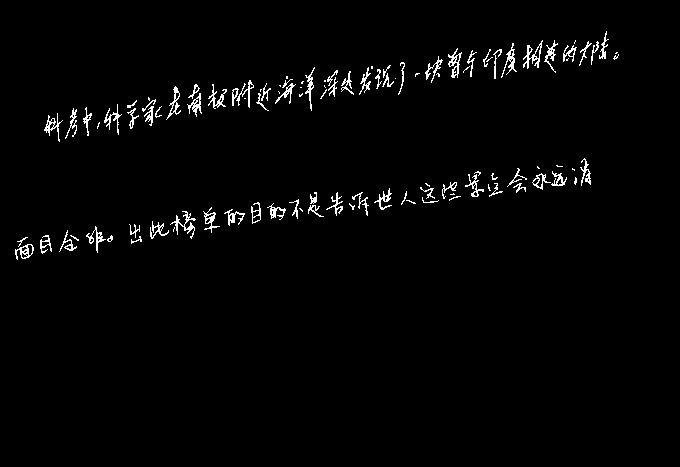 科考中，科学家在南极附近海洋深处发现了一块曾与印度相连的大陆。
面目全非。出此榜单的目的不是告诉世人这些景点会永远消